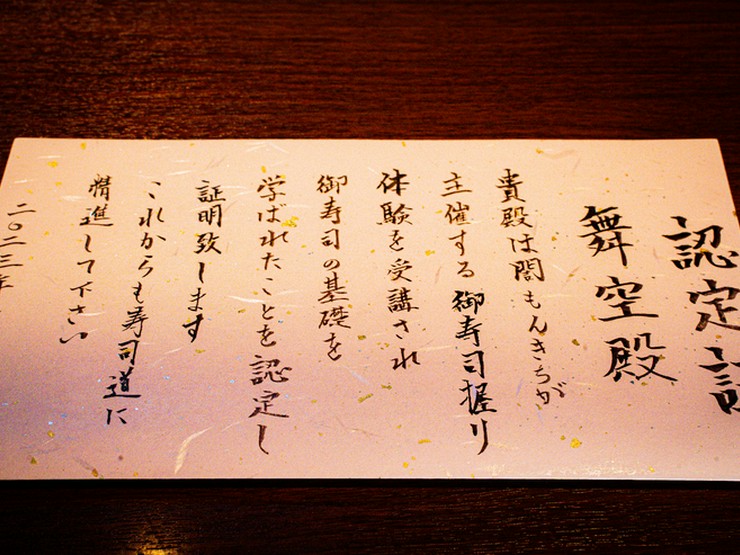 認定証
舞空殿
貴殿は闇もんきちが
主催する御寿司握り
体験を受講され
御寿司の基礎を
学ばれたことを認定し
証明致します
これからも寿司道に
精進して下さい
二〇二三年